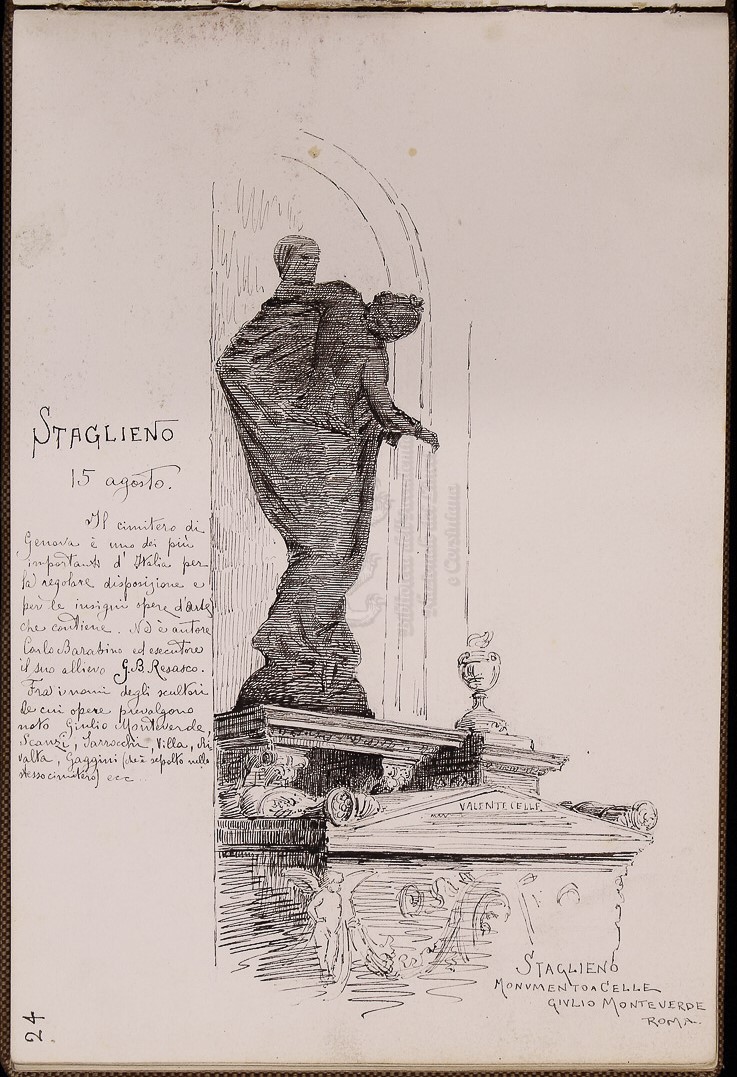 STAGLIENO
15 agosto.
Il cimitero di
Genova è uno dei più
importanti d'Italia per
la regolare disposizione e
per le insigni opere d'arte
che contiene. N'è autore
Carlo Barabino ed esecutore
il suo allievo G.B. Resasco.
Fra i nomi degli scultori
le cui opere prevalgono
noto Giulio Monteverde,
Scanzi, Sarrocchi, Villa, Ri
valta, Gaggini (che è sepolto nello
stesso cimitero) ecc
VALENTE CELLE
STAGLIENO
MONVMENTO A CELLE
GIVLIO MONTEVERDE
ROMA.
24